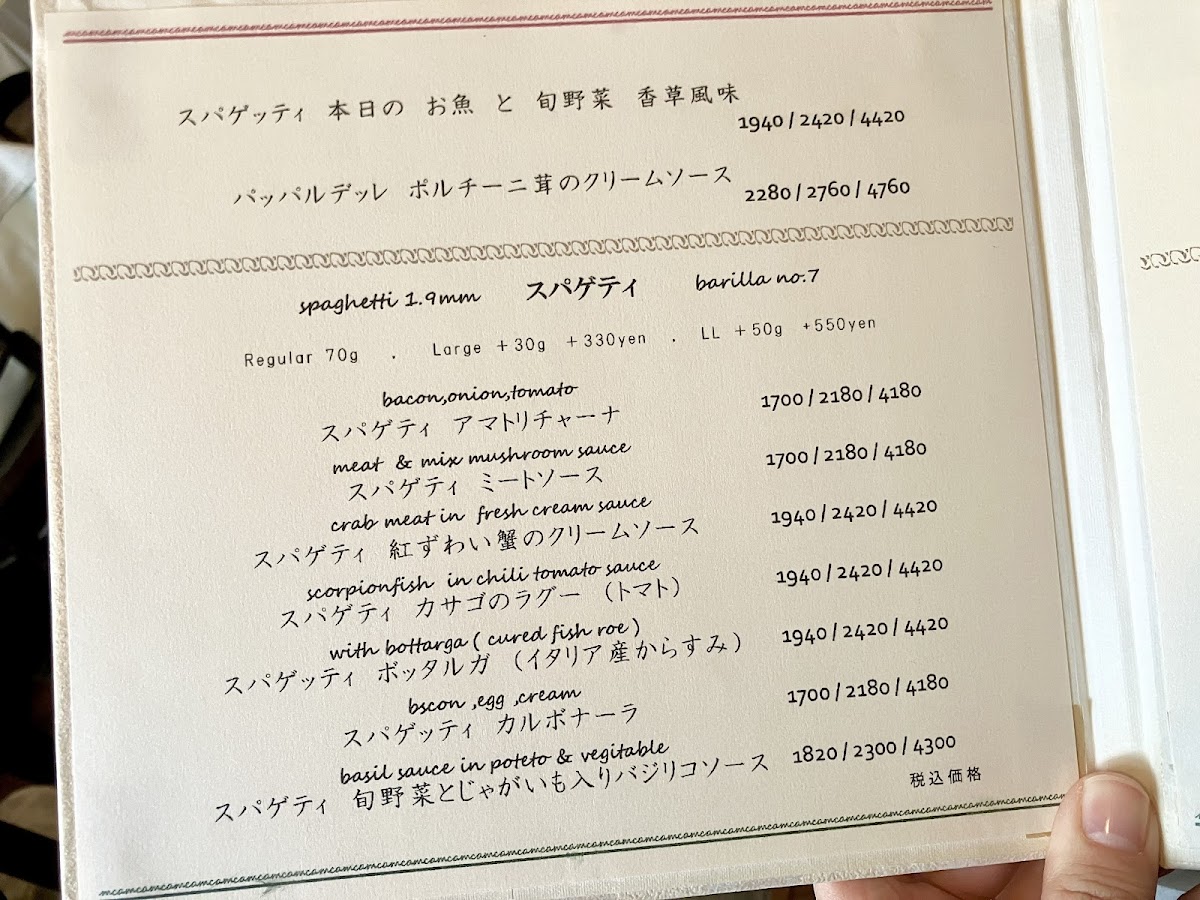 スパゲッティ 本日の お魚 と 旬野菜 香草風味
1940 / 2420 / 4420
パッパルデッレ ポルチーニ茸のクリームソース
2280 / 2760 / 4760
spaghetti 1.9mm スパゲティ barilla no.7
Regular 70g . Large +30g +330yen . LL +50g +550yen
bacon,onion,tomato
スパゲティ アマトリチャーナ 1700 / 2180 / 4180
meat & mix mushroom sauce
スパゲティ ミートソース 1700 / 2180 / 4180
crab meat in fresh cream sauce
スパゲティ 紅ずわい蟹のクリームソース 1940 / 2420 / 4420
scorpionfish in chili tomato sauce
スパゲティ カサゴのラグー （トマト） 1940 / 2420 / 4420
with bottarga ( cured fish roe )
スパゲッティ ボッタルガ （イタリア産からすみ） 1940 / 2420 / 4420
bscon ,egg ,cream
スパゲッティ カルボナーラ 1700 / 2180 / 4180
basil sauce in poteto & vegitable
スパゲティ 旬野菜とじゃがいも入りバジリコソース 1820 / 2300 / 4300
税込価格